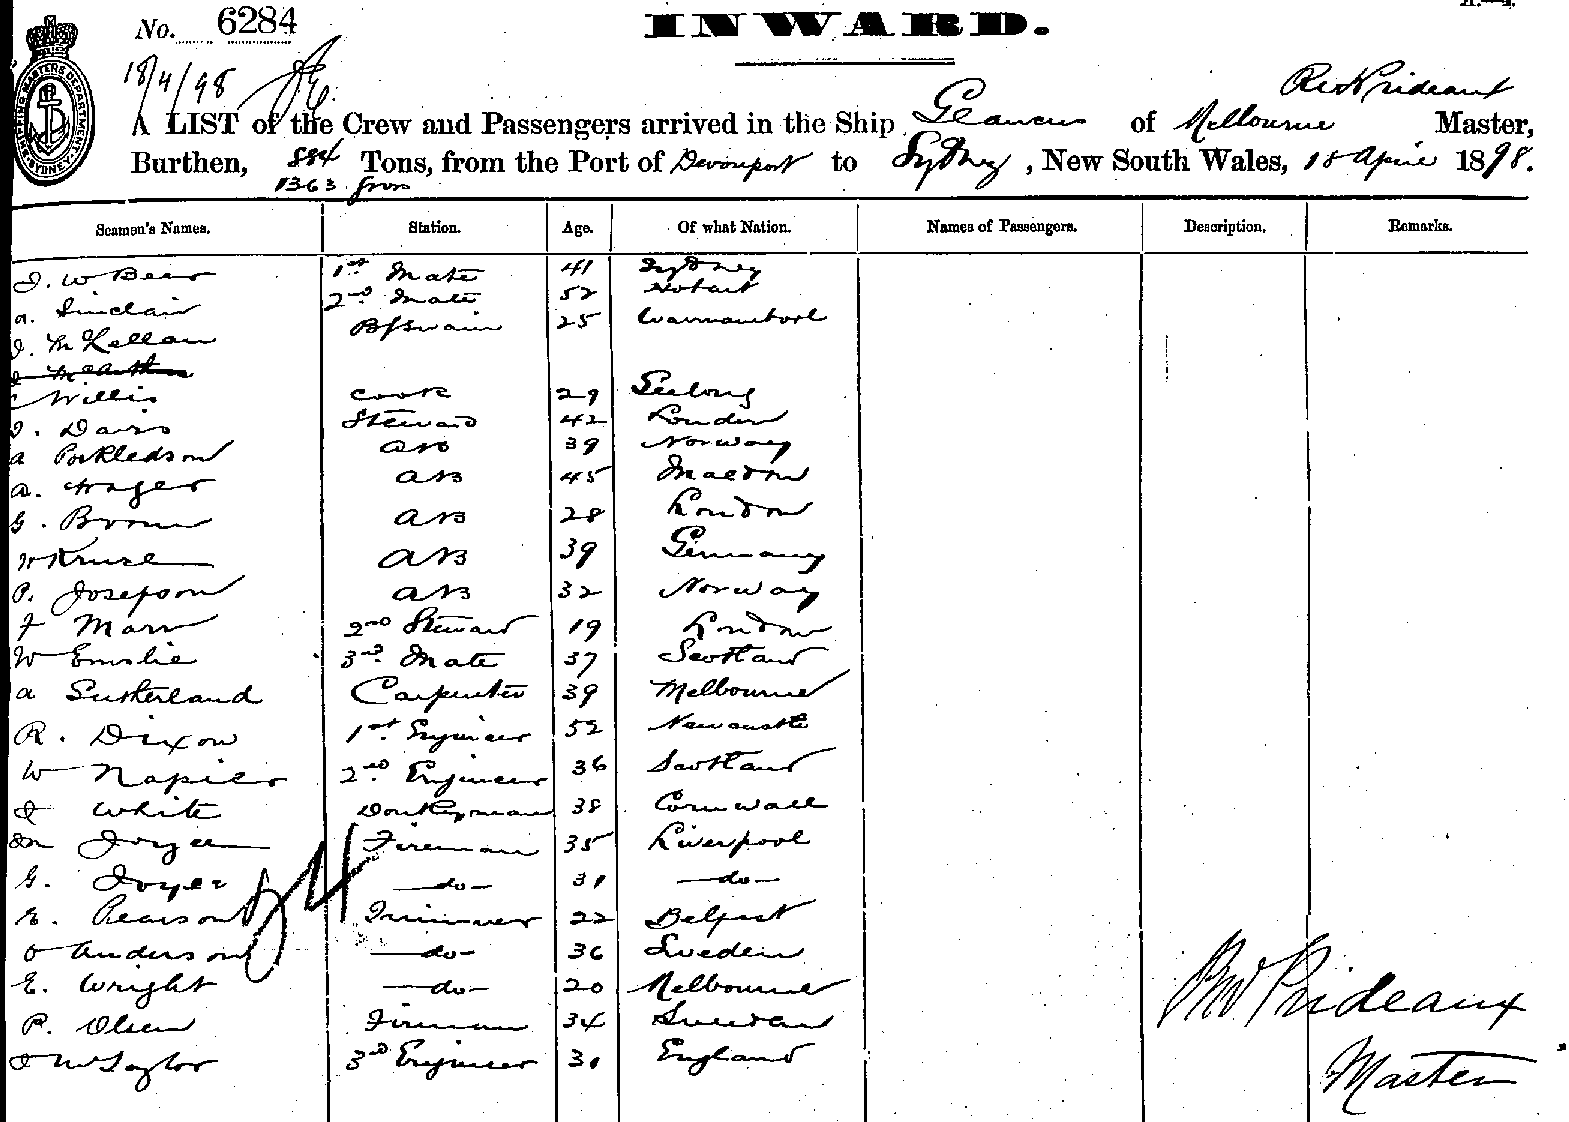 No. 6284
INWARD.
18/4/98
SHIPPING MASTERS DEPARTMENT SYDNEY
A LIST of the Crew and Passengers arrived in the Ship Glaucus of Melbourne Prideaux Master,
Burthen, 884 Tons, from the Port of Devonport to Sydney, New South Wales, 18 April 1898.
1363 gross
Seamen's Names. Station. Age. Of what Nation. Names of Passengers. Description. Remarks.
J. W Bear 1st Mate 41 Sydney
A. Sinclair 2nd Mate 52 Hobart
J. McKellan B/Swain 25 Warrnambool
McArthur
Willis Cook 29 Geelong
J. Davis Steward 42 London
A AB 39 Norway
A. Hager AB 45
G. Brown AB 28 London
W Kruse AB 39 Germany
P. Josepson AB 32 Norway
F Marr 2nd Steward 19 London
W Emslie 3rd Mate 37 Scotland
A Sutherland Carpenter 39 Melbourne
R. Dixon 1st Engineer 52 Newcastle
W Napier 2nd Engineer 36 Scotland
J White Donkeyman 38 Cornwall
M Joyce Fireman 35 Liverpool
G. Joyce do 31 do
E. Pearson Trimmer 22 Belfast
O Anderson do 36 Sweden
E. Wright do 20 Melbourne
P. Olsen Fireman 34 Sweden
J McTaylor 3rd Engineer 30 England
24
RW Prideaux
Master